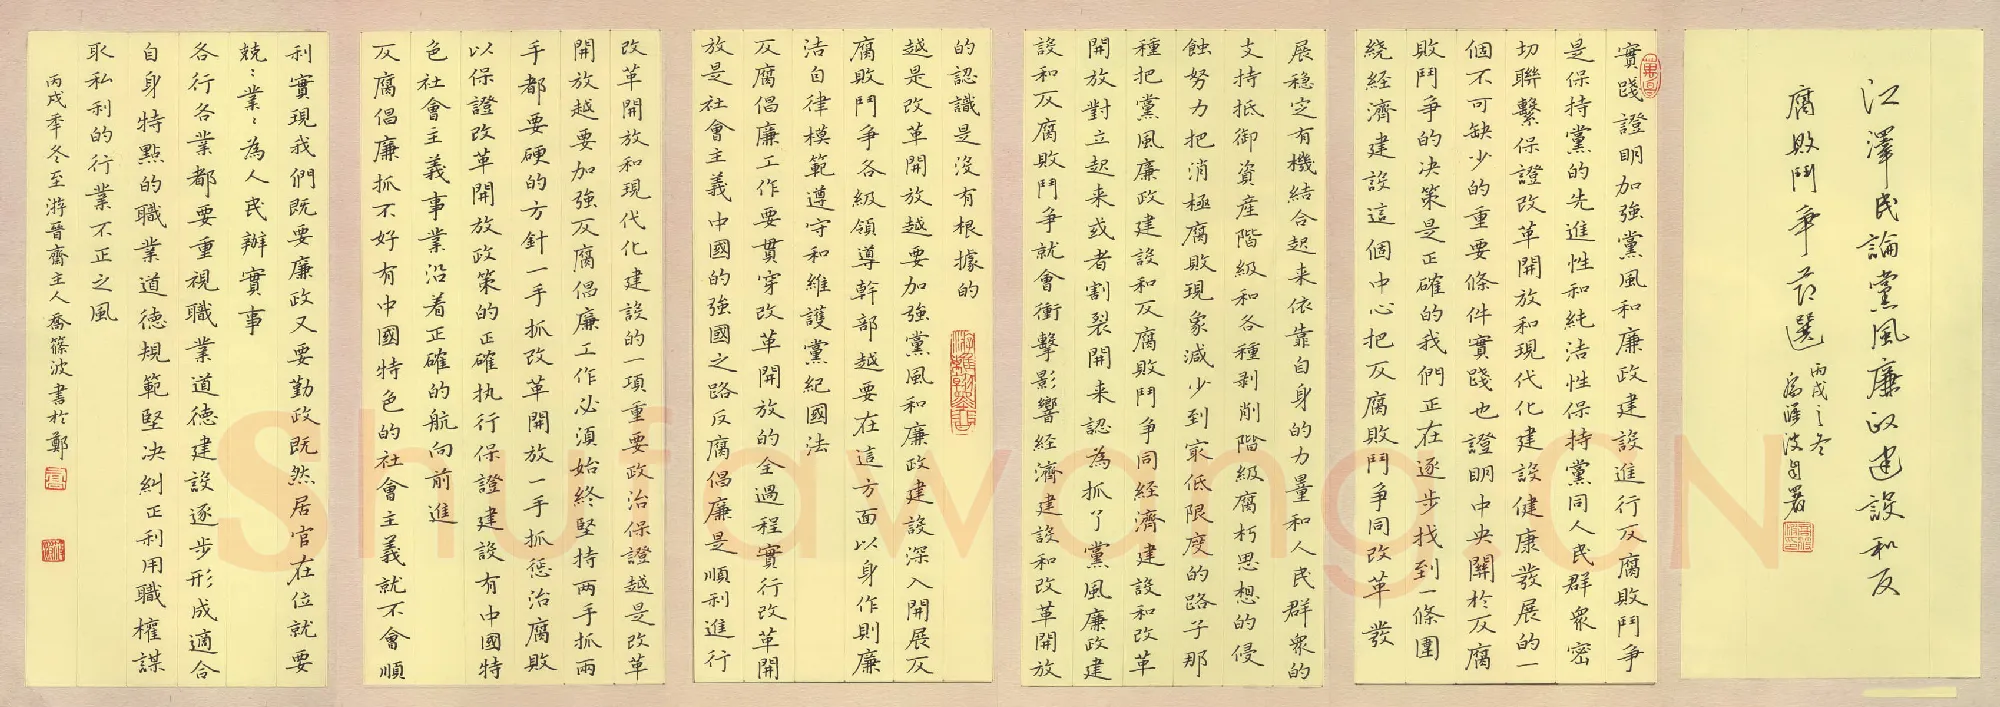 江澤民論黨風廉政建設和反
腐敗鬥爭節選
丙戌之冬
實踐證明加強黨風和廉政建設進行反腐敗鬥爭
是保持黨的先進性和純洁性保持黨同人民群眾密
切聯繫保證改革開放和現代化建設健康發展的一
個不可缺少的重要條件實踐也證明中央關於反腐
敗鬥爭的决策是正確的我們正在逐步找到一條圍
繞経濟建設這個中心把反腐敗鬥爭同改革發
展穩定有機結合起来依靠自身的力量和人民群眾的
支持抵御資産階級和各種剥削階級腐朽思想的侵
蝕努力把消極腐敗現象減少到最低限度的路子那
種把黨風廉政建設和反腐敗鬥争同経濟建設和改革
開放對立起来或者割裂開来認為抓了黨風廉政建
設和反腐敗鬥争就會衝擊影響経濟建設和改革開放
的認識是没有根據的
越是改革開放越要加強黨風和廉政建設深入開展反
腐敗鬥争各級領導幹部越要在這方面以身作則廉
洁自律模範遵守和維護黨紀國法
反腐倡廉工作要貫穿改革開放的全過程實行改革開
放是社會主義中國的強國之路反腐倡廉是順利進行
改革開放和現代化建設的一項重要政治保證越是改革
開放越要加強反腐倡廉工作必須始終堅持两手抓兩
手都要硬的方針一手抓改革開放一手抓惩治腐敗
以保證改革開放政策的正確执行保證建設有中國特
色社會主義事業沿着正確的航向前進
反腐倡廉抓不好有中國特色的社會主義就不會順
利實現我們既要廉政又要勤政既然居官在位就要
兢：業：為人民辦實事
各行各業都要重視職業道德建設逐步形成適合
自身特點的職業道德規範堅决糾正利用職權謀
取私利的行業不正之風
丙戌季冬至游晉齋主人喬篠波書於鄭
Shufawang.CN